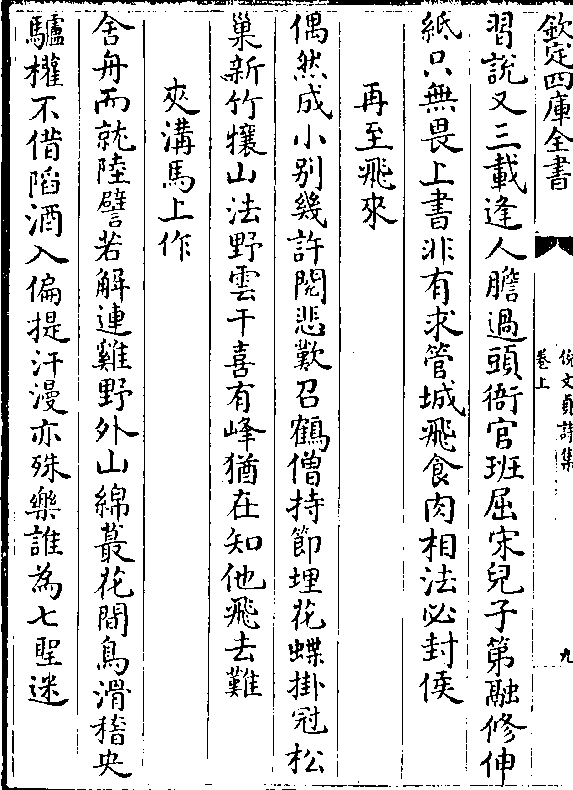 欽定四庫全書
倪文貞詩集
卷上
九
習說又三載逢人膽過頭衙官班屈宋兒子第融修伸
紙只無畏上書非有求管城飛食肉相法必封侯
再至飛來
偶然成小别幾許閱悲歎召鶴僧持節埋花蝶掛冠松
巢新竹攘山法野雲干喜有峰猶在知他飛去難
夾溝馬上作
舍舟而就陸譬若解連雞野外山綿蕞花間鳥滑稽央
驢權不借陷酒入偏提汗漫亦殊樂誰為七聖迷